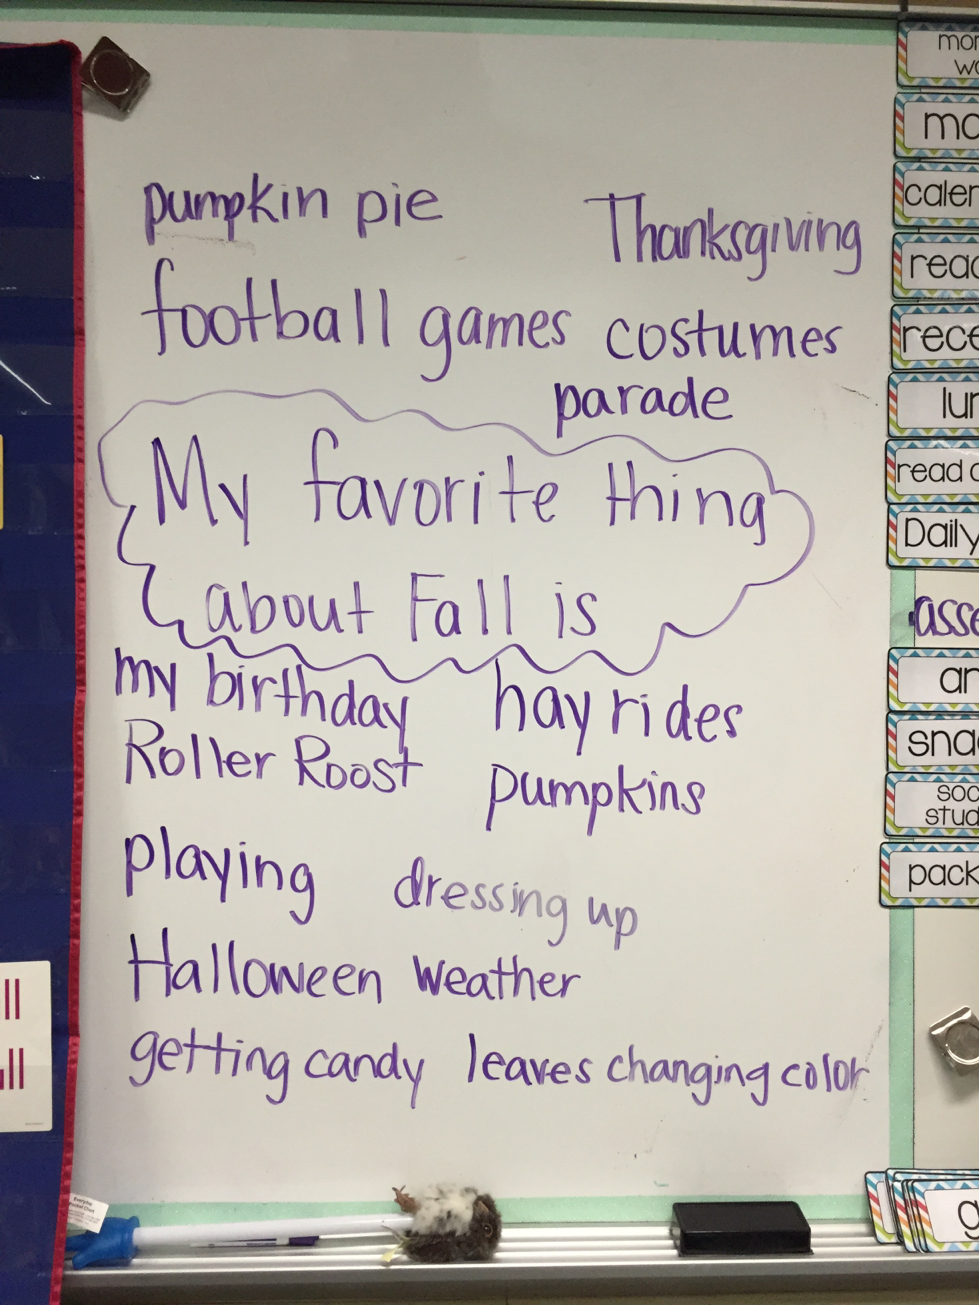 pumpkin pie
Thanksgiving
football games
costumes
parade
My favorite thing
about Fall is
my birthday
hay rides
Roller Roost
pumpkins
playing
dressing up
Halloween
weather
getting candy
leaves changing color
mor
wo
calen
read
rece
lun
read a
Daily
asse
an
sna
soc
stud
pack
g